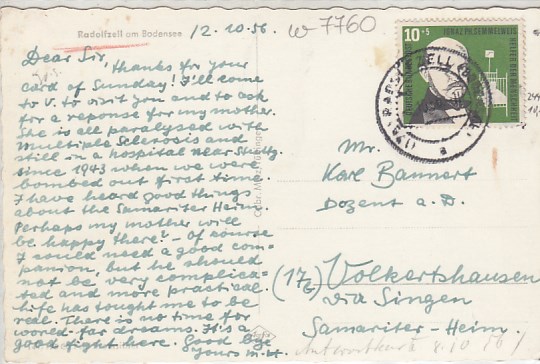 Radolfzell am Bodensee
12.10.56
W 7760
Dear Sir,
thanks for your
card of Sunday! I'll come
to V. to visit you and to ask
for a reponse for my mother.
She is all paralysed with
Multiple Sclerosis and
still in a hospital near
since 1943 when we were
bombed out first time.
I have heard good things
about the Samariter Heim.
Perhaps my mother will
be happy there? - Of course
I could need a good com-
panion, but he should
not be very complica-
ted and more practical.
Life has tought me to be
real. There is no time for
world for dreams. It's a
good fight here. Good bye
yours
Gebr. Metz, Tübingen
10+5
DEUTSCHE BUNDESPOST
IGNAZ PH. SEMMELWEIS
HELFER DER MENSCHHEIT
RADOLFZELL
Mr.
Karl Bannert
Dozent a. D.
(17b) Volkertshausen
via Singen
Samariter-Heim.